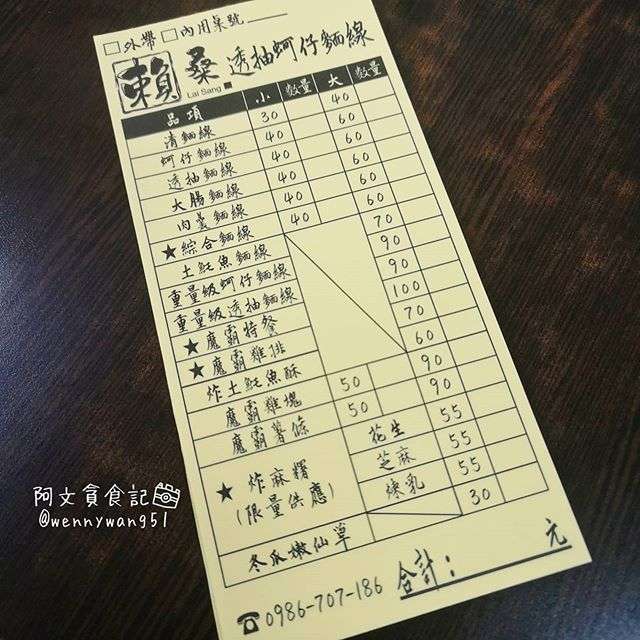 □外帶 □內用桌號
賴桑 透抽蚵仔麵線
Lai Sang
品項 小 數量 大 數量
清麵線 30 40
蚵仔麵線 40 60
透抽麵線 40 60
大腸麵線 40 60
肉羹麵線 40 60
★綜合麵線 40 60
土魠魚麵線 70
重量級蚵仔麵線 90
重量級透抽麵線 90
★魔霸特餐 100
★魔霸雞排 70
炸土魠魚酥 60
魔霸雞塊 50 90
魔霸薯條 50 90
★炸麻糬 花生 55
(限量供應) 芝麻 55
煉乳 55
冬瓜嫩仙草 30
☎0986-707-186 合計: 元
阿文貪食記
@wennywang951